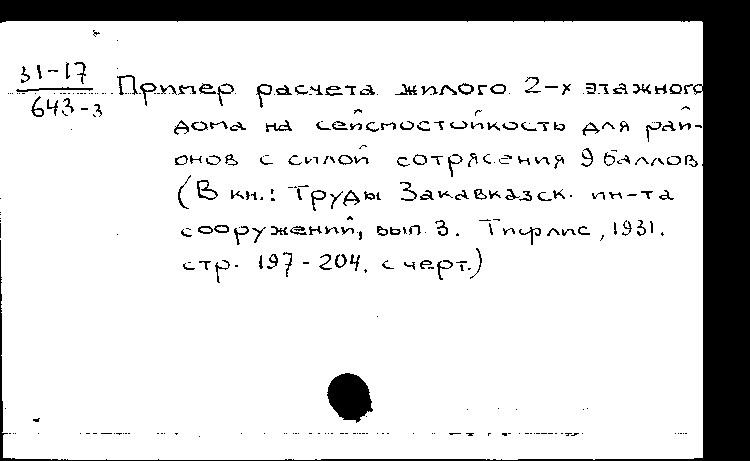 31-17
643-3
Пример расчета жилого 2-х этажного
дома на сейсмостойкость для рай-
онов с силой сотрясения 9 баллов.
(В кн.: Труды Закавказск. ин-та
сооружений, вып. 3. Тифлис, 1931.
стр. 197-204. с черт.)